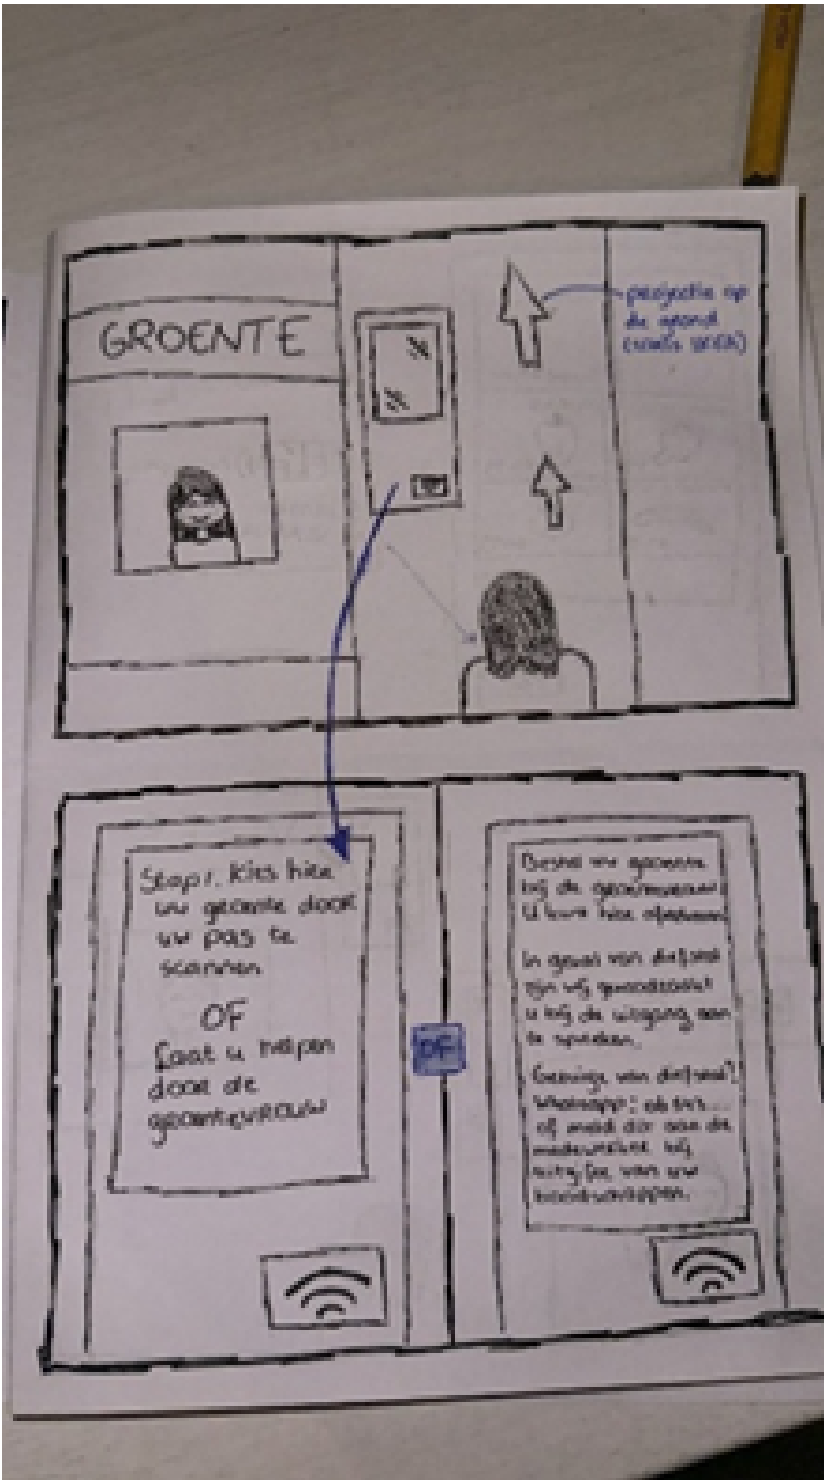 GROENTE
projectie op
de grond
Stap 1. Kies hier
uw groente door
uw pas te
scannen
OF
Laat u helpen
door de
groentevrouw
OF
Bestel uw groente
bij de groentevrouw
U kunt hier afrekenen
In geval van diefstal
zijn wij genoodzaakt
u bij de uitgang aan
te spreken.
Getuige van diefstal?
Whatsapp: 06
of meld dit aan de
medewerker bij
uitgifte van uw
boodschappen.